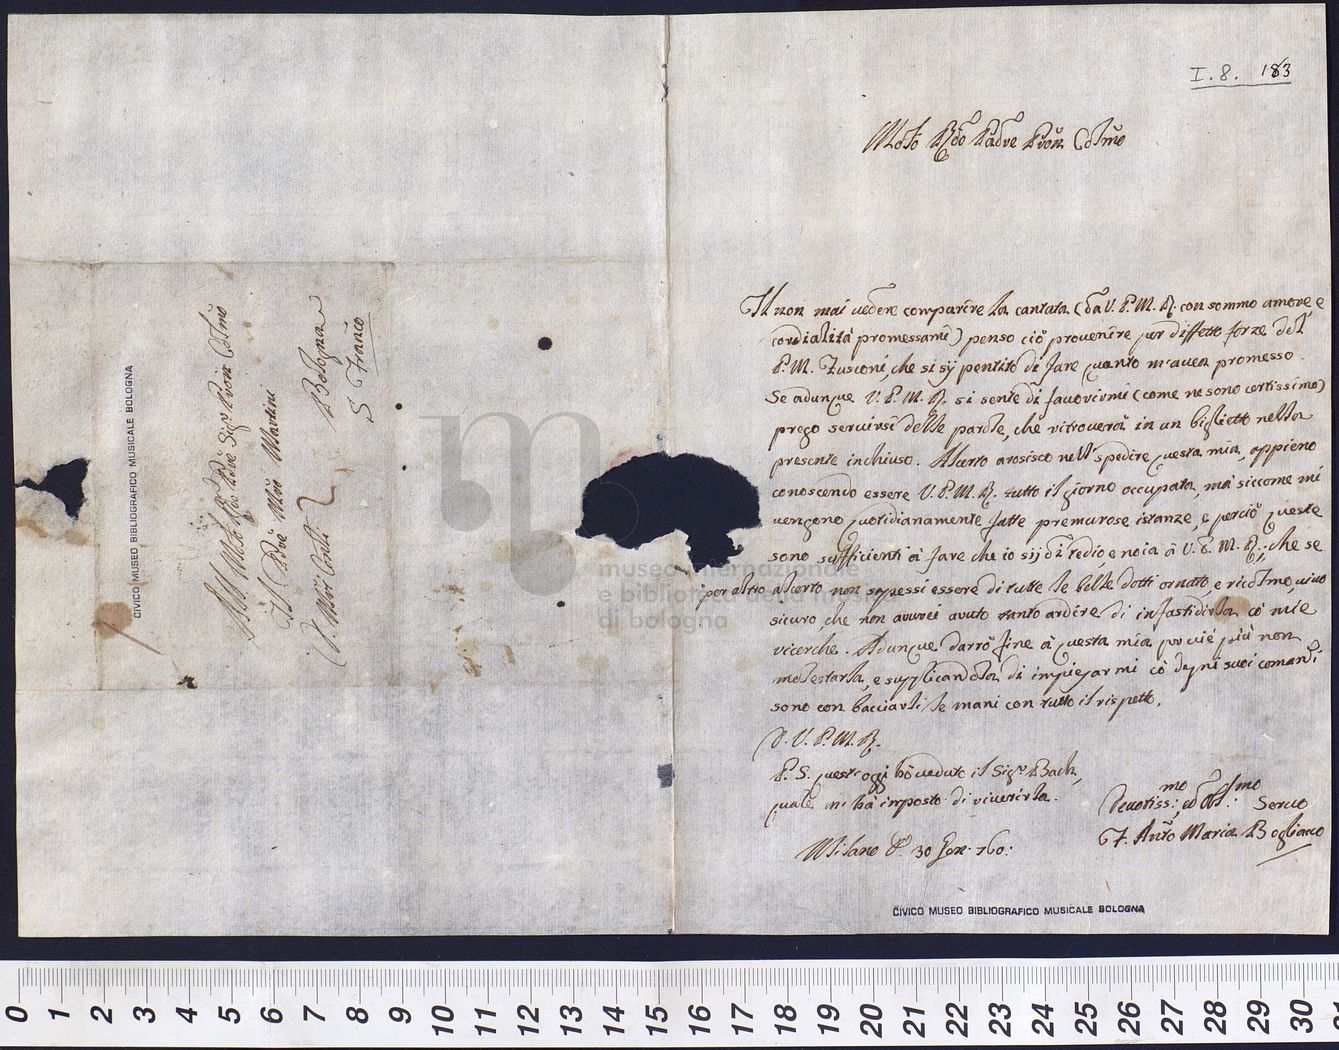 I. 8. 183
Molto Rdo Padre Pron Colmo
Il non mai vedere comparire la cantata (da V. P. M. R. con sommo amore, e
cordialità promessami) penso ciò provenire per diffetto forze del
P. M. Zusconi, che si sij pentito di fare quanto m'avea promesso.
Se adunque V. P. M. R. si sente di favorirmi (come ne sono certissimo)
prego servirsi delle parole, che ritroverà in un biglietto nella
presente inchiuso. Al certo arosisco nell'spedire questa mia, appieno
conoscendo essere V. P. M. R. tutto il giorno occupata, mà siccome mi
vengono quotidianamente fatte premurose istanze, e perciò queste
sono sufficienti à fare che io sij di tedio, e noia à V. P. M. R.: che se
per altro al certo non sapessi essere di tutte le belle dotti ornato, e ricolmo, vivo
sicuro, che non averei avuto tanto ardire di infastidirla cõ mie
ricerche. Adunque darrò fine à questa mia per più non
molestarla, e supplicandola di impiegarmi cõ degni suoi comandi
sono con bacciarli le mani con tutto il rispetto.
D. V. P. M. R.
P. S. quest'oggi hò veduto il Sigr Bach,
quale mi hà imposto di riverirla.
Devotiss:mo, ed Obl:mo Servo
F. Anto Maria Bogliacco
Milano 30 760:
CIVICO MUSEO BIBLIOGRAFICO MUSICALE BOLOGNA
Al Molto Rdo Pdre Sigr Pron Colmo
Il Pdre Mro Martini
Min: Conli:
Bologna
S Franco
CIVICO MUSEO BIBLIOGRAFICO MUSICALE BOLOGNA
museo internazionale
e biblioteca della musica
di bologna
0 1 2 3 4 5 6 7 8 9 10 11 12 13 14 15 16 17 18 19 20 21 22 23 24 25 26 27 28 29 30